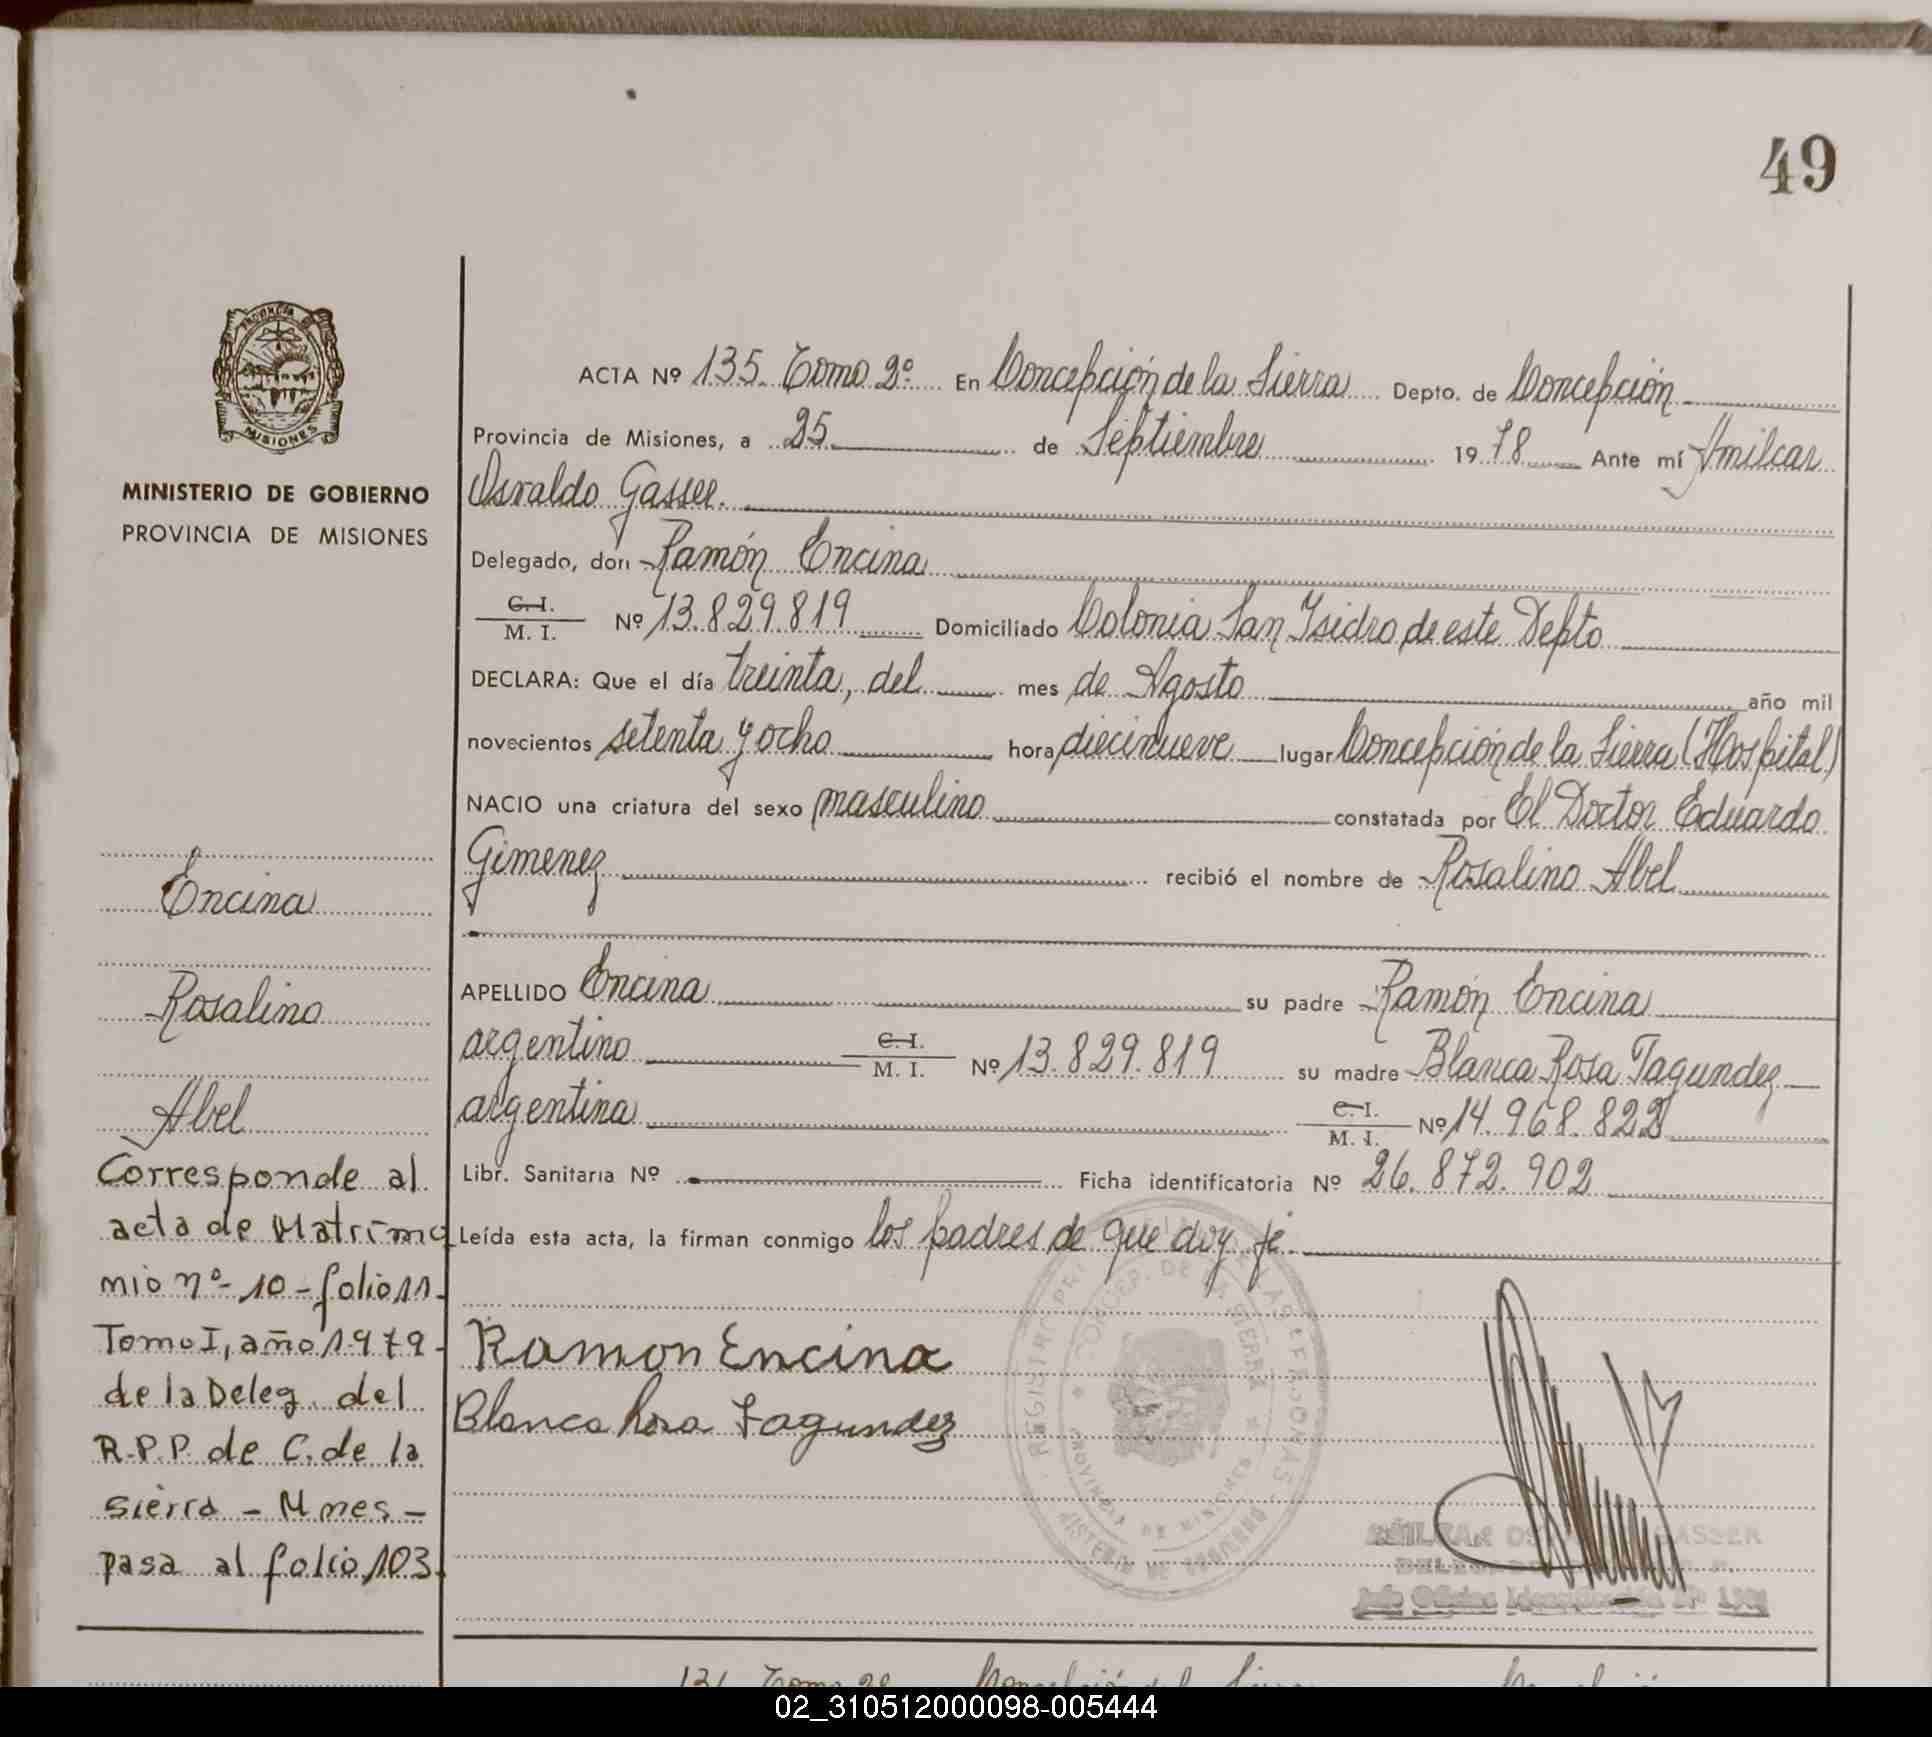 49
PROVINCIA DE
MISIONES
MINISTERIO DE GOBIERNO
PROVINCIA DE MISIONES
ACTA Nº 135. Tomo 2º En Concepción de la Sierra Depto. de Concepción
Provincia de Misiones, a 25 de Septiembre 1978 Ante mí Amilcar
Osvaldo Gasser.
Delegado, don Ramón Encina
C. I.
M. I. Nº 13.829.819 Domiciliado Colonia San Isidro de este Depto
DECLARA: Que el día treinta, del mes de Agosto año mil
novecientos setenta y ocho hora diecinueve lugar Concepción de la Sierra (Hospital)
NACIO una criatura del sexo masculino constatada por El Doctor Eduardo
Gimenez recibió el nombre de Rosalino Abel
APELLIDO Encina su padre Ramón Encina
argentino C. I.
M. I. Nº 13.829.819 su madre Blanca Rosa Fagundez
argentina C. I.
M. I. Nº 14.968.822
Libr. Sanitaria Nº Ficha identificatoria Nº 26.872.902
Leída esta acta, la firman conmigo los padres de que doy fé.
Ramon Encina
Blanca Rosa Fagundez
Encina
Rosalino
Abel
Corresponde al
acta de Matrimo
nio nº- 10 - folio 11-
Tomo I, año 1979-
de la Deleg. del
R.P.P. de C. de la
Sierra - Mnes -
pasa al folio 103.
CONCEP. DE LA SIERRA
PROVINCIA DE MISIONES
MINISTERIO DE GOBIERNO
02_310512000098-005444